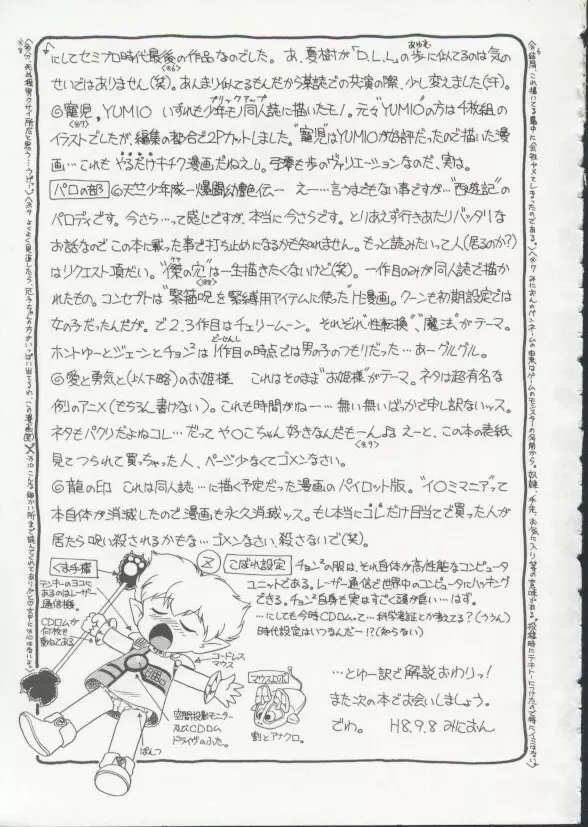 にしてセミプロ時代最後の作品なのでした。 あ、夏樹が「D.L.L」の歩に似てるのは気の
せいではありません(笑)。あんまり似てるもんだから某誌での共演の際、少し変えました(汗)
◎寵児。YUMIO いずれも少年モノ同人誌に描いたモノ。元々"YUMIO"の方は千枚組の
イラストでしたが、編集の都合で2Pカットしました。"寵児"はYUMIOが好評だったので描いた漫
画…これも やるだけキチク漫画だねえし。弓雫も歩のヴァリエーションなのだ、実は。
パロの部 ◎天竺少年隊ー爆闘幼艶伝ー えー…言うまでもない事ですが…"西遊記"の
パロディです。今さら…って感じですが、本当に今さらです。とりあえず行きあたりバッタリな
お話なので この本に載った事で打ち止めになるかも知れません。もっと読みたいって人(居るのか?)
はリクエスト頂だい。"僕の穴"は一生描きたくないけど(笑)。一作目のみが同人誌で描か
れたもの。コンセプトは"緊箍呪を緊縛用アイテムに使った"H漫画。クーンも初期設定では
女の子だったんだが。で2.3作目はチェリームーン。それぞれ"性転換"、"魔法"がテーマ。
ホントゆーとジェーンとチョン²は1作目の時点では男の子のつもりだった…あーグルグル。
◎愛と勇気と(以下略)のお姫様 これはそのまま"お姫様"がテーマ。ネタは超有名な
例のアニメ(もちろん書けない)。これも時間がねー…無い無いばっかで申し訳ないッス。
ネタもパクリだよねコレ…だって や○こちゃん 好きなんだもーん♪ えーと、この本の表紙
見てつられて買っちゃった人、ページ少なくてゴメンなさい。
◎龍の印 これは同人誌…に描く予定だった漫画の パイロット版。"イ○ミマニア"って
本自体が消滅したので漫画も永久消滅ッス。もし本当にコレだけ目当てで買った人が
居たら呪い殺されるかもな…ゴメンなさい、殺さないで(笑)。
こぼれ設定 チョン²の服は、それ自体が高性能なコンピュータ
ユニットである。レーザー通信で世界中のコンピュータにハッキング
できる。チョン²自身も実はすごく頭が良い…はず。
…にしても今時CDロムって…科学考証とか考えてる?(ううん)
時代設定はいつなんだー!?(知らない)
くま手様
テンキーのヨコに
あるのはレーザー
通信機。
CDロムが
何枚も
重ねてある
コードレス
マウス
空間投影モニター
及びCDロム
ドライヴのふた。
ぱんつ
マウスロボ
割とアナクロ。
…とゆー訳で解説おわりっ!
また次の本でお会いしましょう。
でわ。 H8.9.8 みにおん